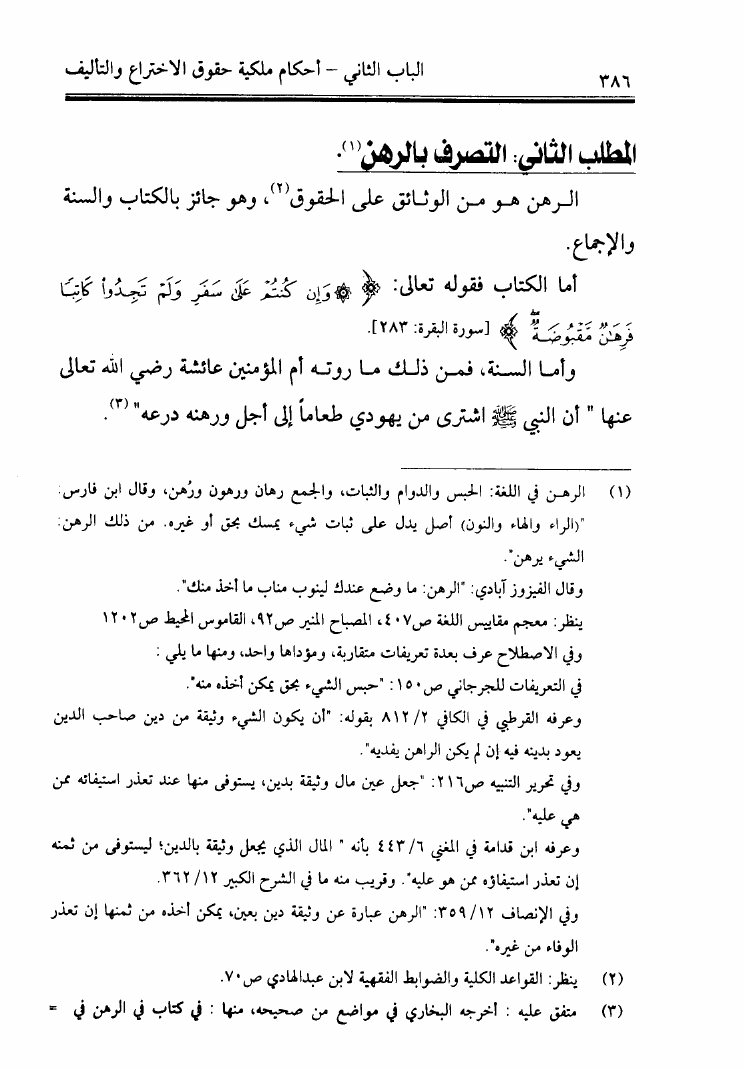 ٣٨٦
الباب الثاني – أحكام ملكية حقوق الاختراع والتأليف
المطلب الثاني: التصرف بالرهن(١).
الـرهن هـو مـن الوثـائق على الحقوق(٢)، وهو جائز بالكتاب والسنة
والإجماع.
أما الكتاب فقوله تعالى: ﴿ ۞ وَإِن كُنتُمْ عَلَىٰ سَفَرٍ وَلَمْ تَجِدُوا۟ كَاتِبًا
فَرِهَـٰنٌ مَّقْبُوضَةٌ ۖ ﴾ [سورة البقرة: ٢٨٣].
وأمـا السـنة، فمـن ذلـك مـا روتـه أم المؤمنين عائشة رضي الله تعالى
عنها " أن النبي ﷺ اشترى من يهودي طعاماً إلى أجل ورهنه درعه" (٣).
(١) الرهـن في اللغة: الحبس والدوام والثبات، والجمع رهان ورهون ورُهن، وقال ابن فارس:
"(الراء والهاء والنون) أصل يدل على ثبات شيء يمسك بحق أو غيره. من ذلك الرهن:
الشيء يرهن".
وقال الفيزوز آبادي: "الرهن: ما وضع عندك لينوب مناب ما أخذ منك".
ينظر: معجم مقاييس اللغة ص٤٠٧، المصباح المنير ص٩٢، القاموس المحيط ص١٢٠٢
وفي الاصطلاح عرف بعدة تعريفات متقاربة، ومؤداها واحد، ومنها ما يلي :
في التعريفات للجرجاني ص١٥٠: "حبس الشيء بحق يمكن أخذه منه".
وعرفه القرطبي في الكافي ٨١٢/٢ بقوله: "أن يكون الشيء وثيقة من دين صاحب الدين
يعود بدينه فيه إن لم يكن الراهن يفديه".
وفي تحرير التنبيه ص٢١٦: "جعل عين مال وثيقة بدين، يستوفى منها عند تعذر استيفائه ممن
هي عليه".
وعرفه ابن قدامة في المغني ٤٤٣/٦ بأنه " المال الذي يجعل وثيقة بالدين؛ ليستوفى من ثمنه
إن تعذر استيفاؤه ممن هو عليه". وقريب منه ما في الشرح الكبير ٣٦٢/١٢.
وفي الإنصاف ٣٥٩/١٢: "الرهن عبارة عن وثيقة دين بعين، يمكن أخذه من ثمنها إن تعذر
الوفاء من غيره".
(٢) ينظر: القواعد الكلية والضوابط الفقهية لابن عبدالهادي ص٧٠.
(٣) متفق عليه : أخرجه البخاري في مواضع من صحيحه، منها : في كتاب في الرهن في =